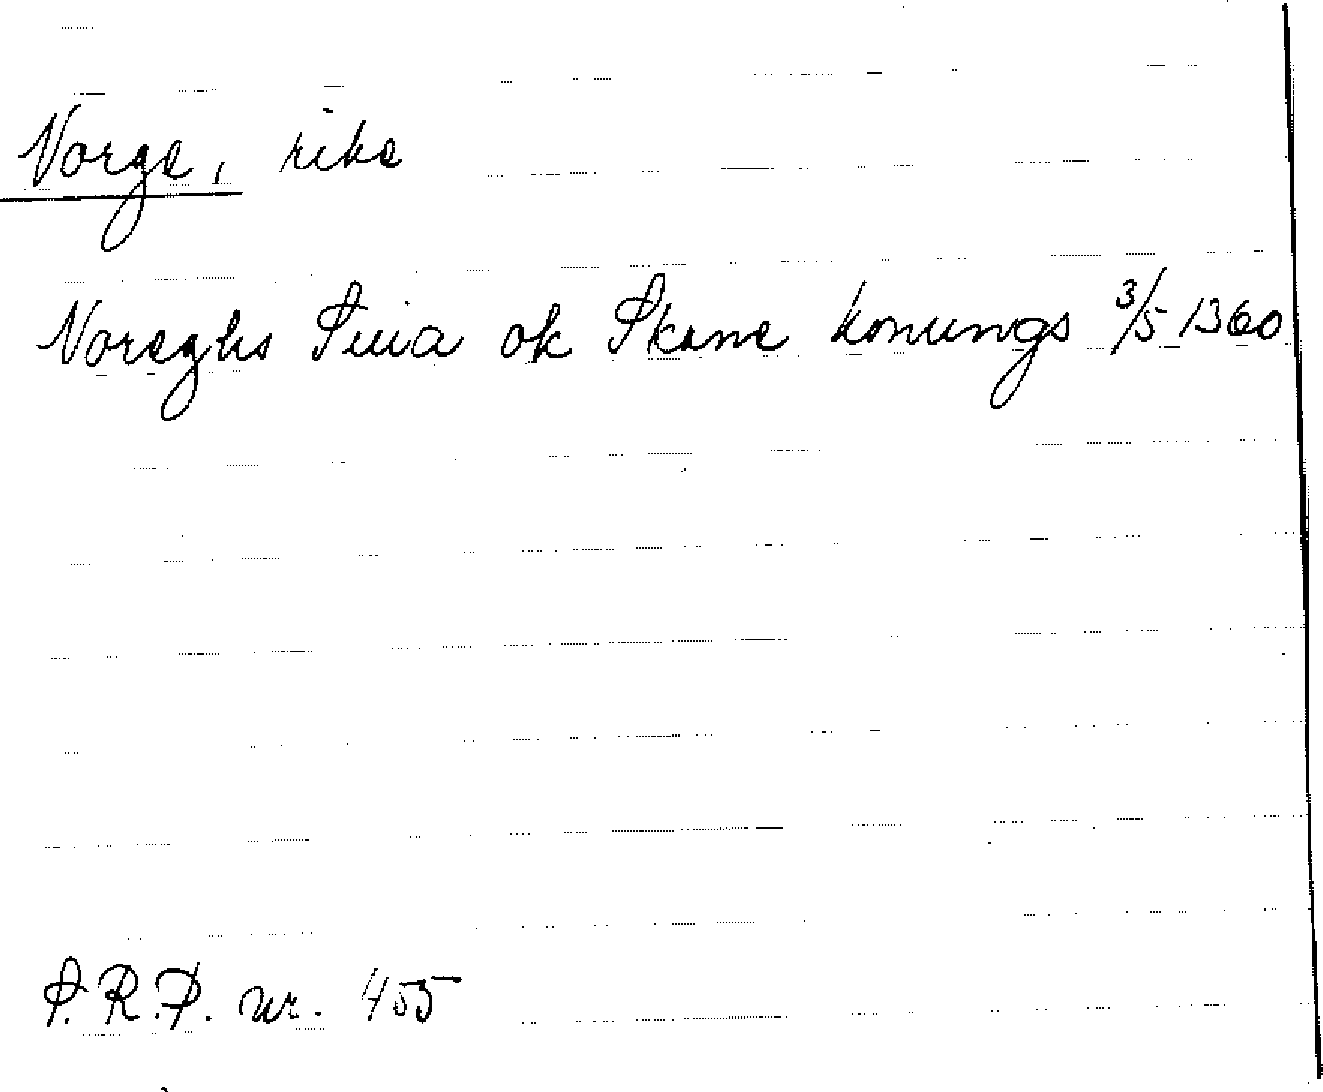 Norge, rike
Noreghs Suia ok Skane konungs 3/5 1360
S.R.P. nr. 455